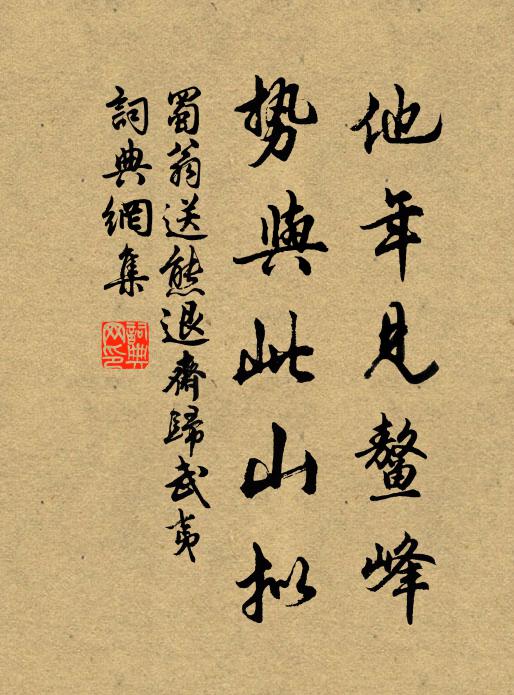 他年見鰲峰
勢與此山拟
蜀翁送熊退齋歸武夷
詞典網集
詞典网印